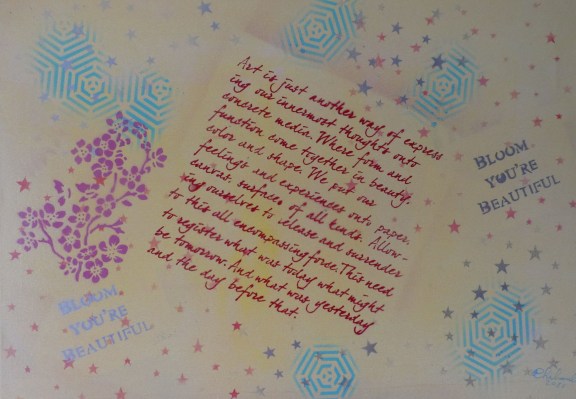 Art is just another way, of express
ing our innermost thoughts onto
concrete media. Where form and
function come together in beauty,
color and shape. We put our
feelings and experiences ont, paper,
canvas, surfaces of all kinds. Allow-
ing ourselves to release and surrender
to this all encompassing force. This need
to register what was today what might
be tomorrow. And what was yesterday
and the day before that.
BLOOM
YOU'RE
BEAUTIFUL
BLOOM
YOU'RE
BEAUTIFUL